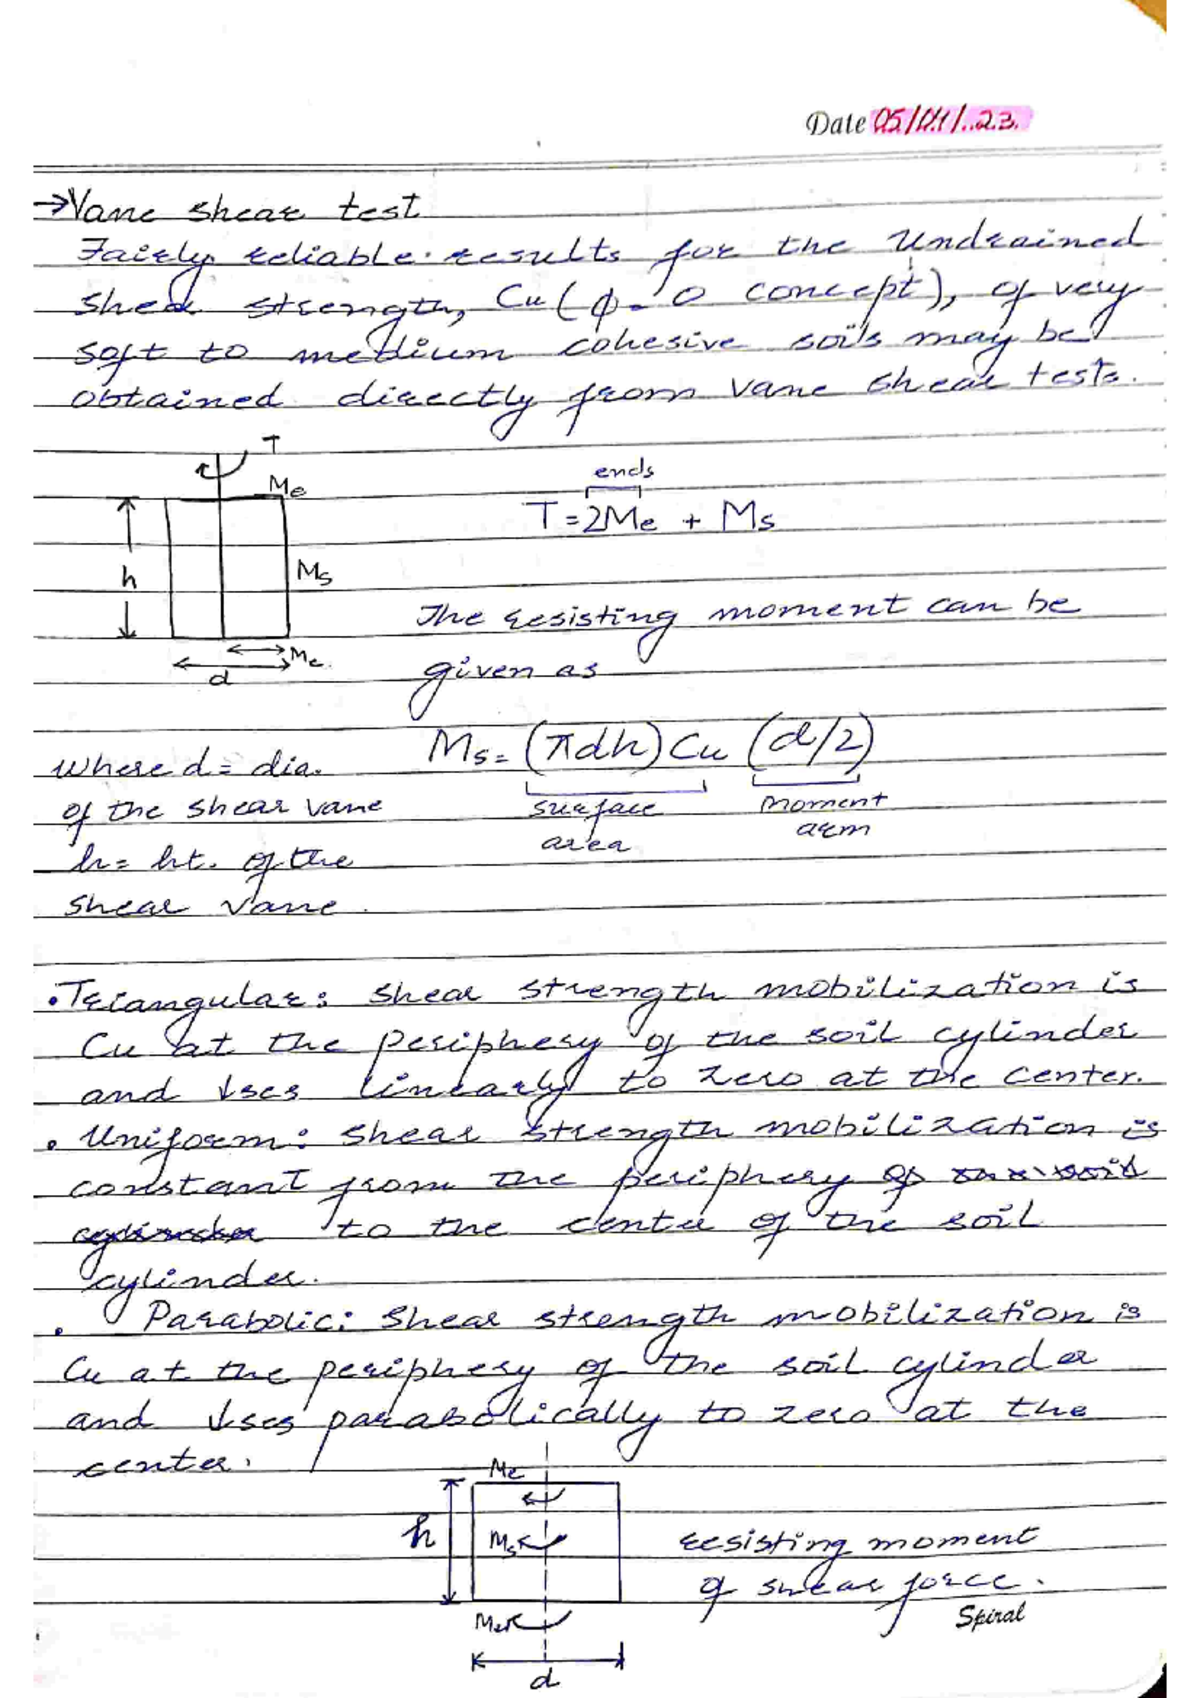 Date 05/01/..23.
→Vane shear test
Fairly reliable results for the Undrained
shear strength, Cu (ϕ=0 concept), of very
soft to medium cohesive soils may be
obtained directly from vane shear tests.
T
Me
ends
T=2Me + Ms
h
Ms
The resisting moment can be
Me
d
given as
Ms= (πdh)Cu (d/2)
where d= dia.
of the shear vane
surface
moment
area
arm
h= ht. of the
shear vane.
•Triangular: shear strength mobilization is
Cu at the periphery of the soil cylinder
and ↓ses linearly to zero at the center.
• Uniform: shear strength mobilization is
constant from the periphery of the soil
cylinder to the center of the soil
cylinder.
• Parabolic: Shear strength mobilization is
Cu at the periphery of the soil cylinder
and ↓ses parabolically to zero at the
center.
Me
h
Ms
resisting moment
of shear force.
Me
Spiral
d